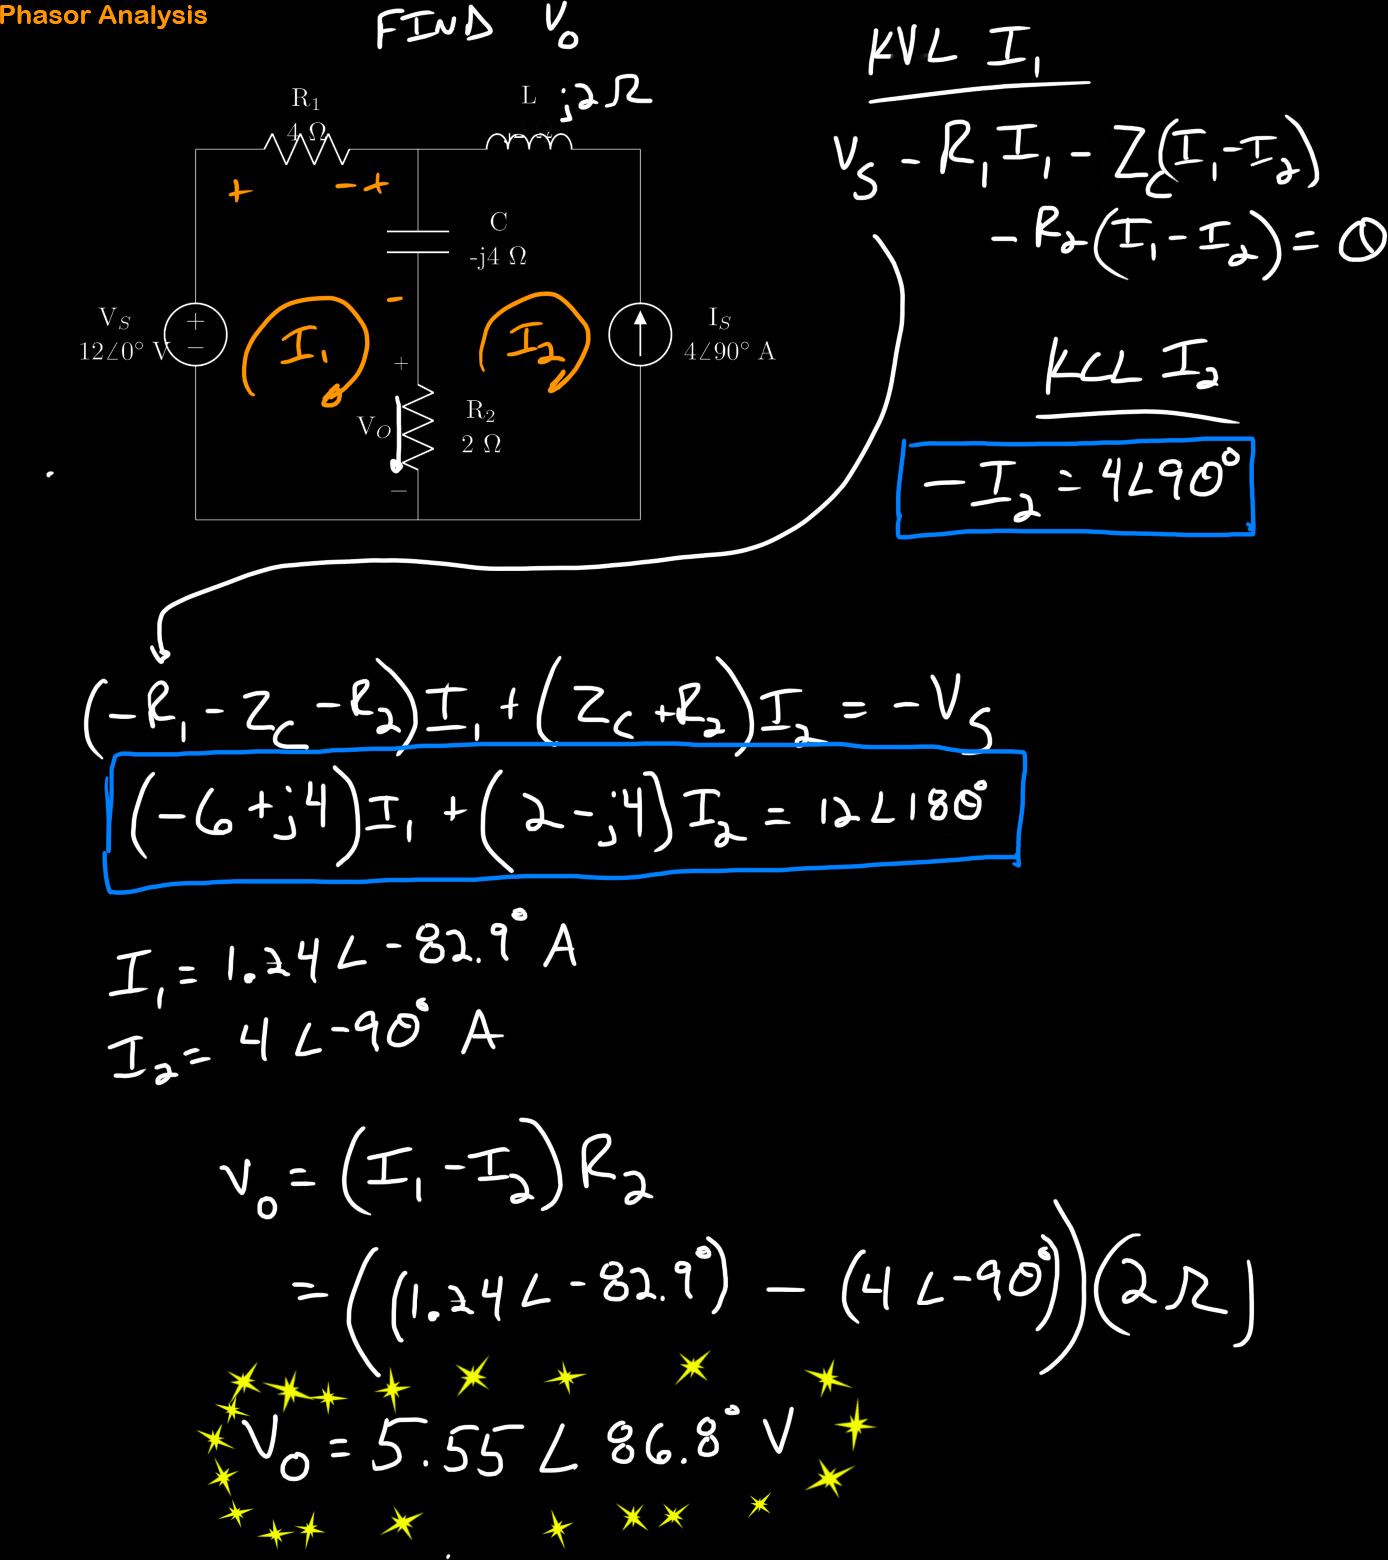 Phasor Analysis
FIND V₀
R₁
4 Ω
L j2Ω
+ - +
C
-j4 Ω
-
V_S
12∠0° V
+
−
I₁
I₂
I_S
4∠90° A
+
V_O
R₂
2 Ω
−
KVL I₁
V_S - R₁I₁ - Z_C(I₁-I₂)
- R₂(I₁-I₂) = 0
KCL I₂
-I₂ = 4∠90°
(-R₁ - Z_C - R₂)I₁ + (Z_C + R₂)I₂ = -V_S
(-6+j4)I₁ + (2-j4)I₂ = 12∠180°
I₁ = 1.24∠-82.9° A
I₂ = 4∠-90° A
V₀ = (I₁ - I₂)R₂
= ((1.24∠-82.9°) - (4∠-90°))(2Ω)
V₀ = 5.55∠86.8° V